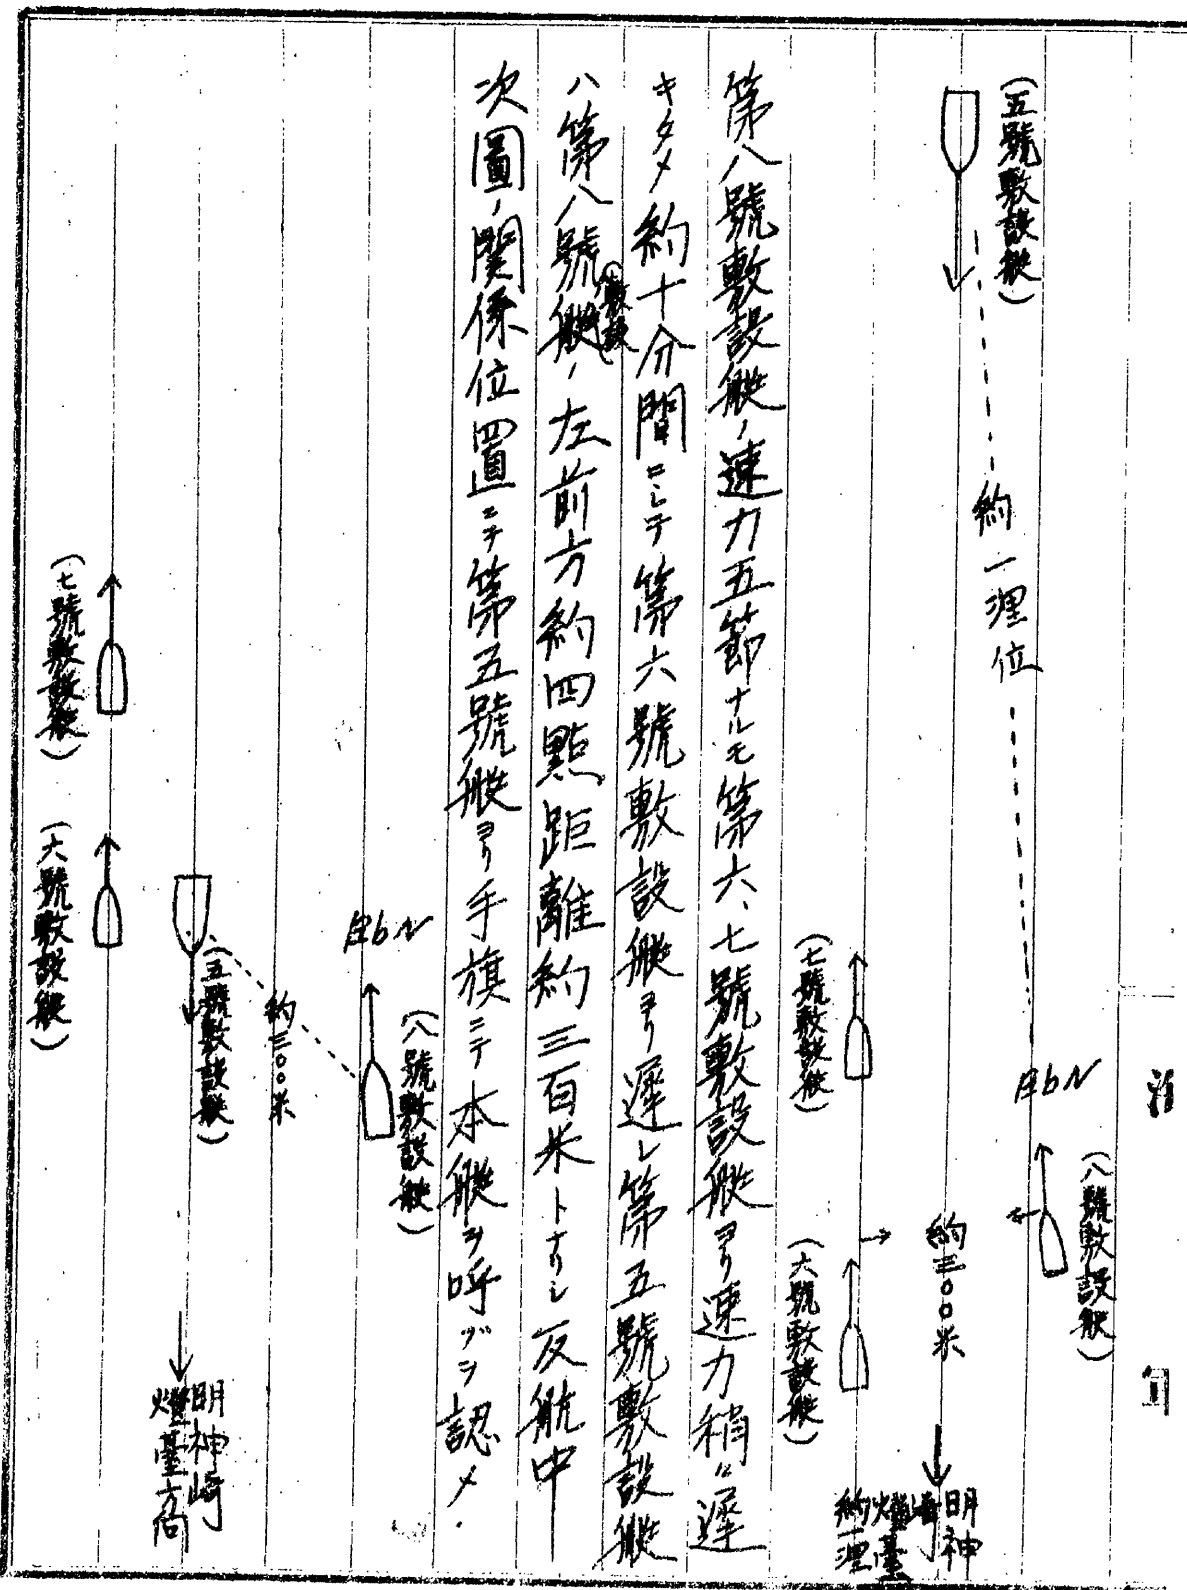 (五號敷設艇)
約一浬位
(八號敷設艇)
約三〇〇米
明神
崎
燈臺
約一浬
(七號敷設艇)
(六號敷設艇)
第八號敷設艇ノ速力五節ナルモ第六、七號敷設艇ヨリ速力稍〻遅
キタメ約十分間ニシテ第六號敷設艇ヨリ遅レ第五號敷設艇
(敷設)
ハ第八號艇ノ左前方約四點距離約三百米トナリシ反航中
次圖ノ関係位置ニテ第五號艇ヨリ手旗ニテ本艇ヲ呼ブヲ認メ
(八號敷設艇)
約三〇〇米
(五號敷設艇)
明神崎
燈臺方向
(七號敷設艇)
(六號敷設艇)